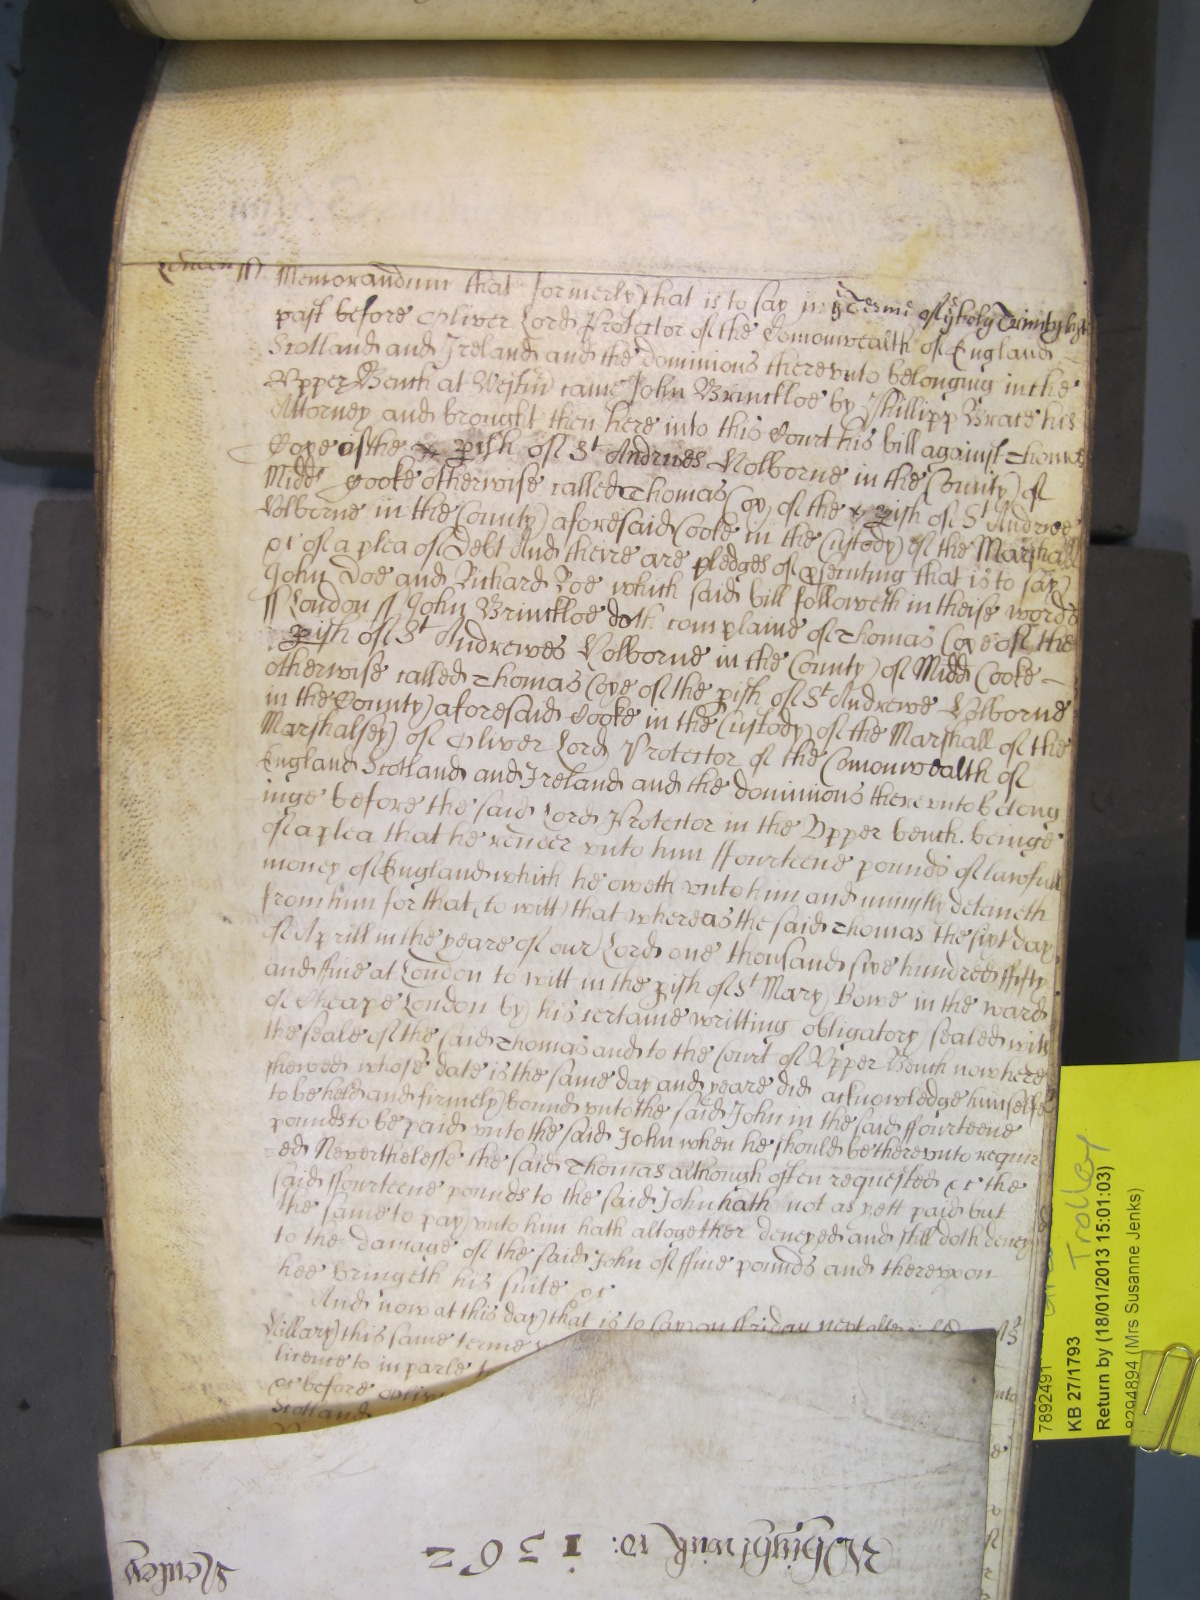 London ss Memorandum that formerly that is to say in ye Terme of ye holy Trinity last
past before Oliver Lord Protector of the Comonwealth of England
Scotland and Ireland and the dominions therevnto belonging in the
Vpper Bench at Westmr came John Brinckloe by Phillipp Brace his
Attorney and brought then here into this Court his bill against Thomas
Cope of the pish of St Andrewes Holborne in the County of
Midd Cooke otherwise called Thomas Cop of the pish of St Andrewe
Holborne in the County aforesaid Cooke in the Custody of the Marshall
&c of a plea of Debt And there are pledges of psecuting that is to say
John Doe and Richard Roe which said bill followeth in theise words
ss London ss John Brinckloe doth complaine of Thomas Cope of the
pish of St Andrewes Holborne in the County of Midd Cooke
otherwise called Thomas Cope of the pish of St Andrewe Holborne
in the County aforesaid Cooke in the Custody of the Marshall of the
Marshalsey of Oliver Lord Protector of the Comonwealth of
England Scotland and Ireland and the dominions therevnto belong
inge before the said Lord Protector in the Vpper bench beinge
of a plea that he render vnto him ffourteene pounds of lawfull
money of England which he oweth vnto him and uniustly detaineth
from him for that to witt that whereas the said Thomas the sixt day
of Aprill in the yeare of our Lord one thousand sixe hundred fifty
and ffiue at London to witt in the pish of St Mary Bowe in the ward
of Cheape London by his certaine writting obligatory sealed with
the seale of the said Thomas and to the Court of Vpper Bench now here
shewed whose date is the same day and yeare did acknowledge himselfe
to be held and firmely bound vnto the said John in the said ffourteene
pounds to be paid vnto the said John when he should be therevnto requir
ed Neverthelesse the said Thomas although often requested &c the
said ffourteene pounds to the said John hath not as yett paid but
the same to pay vnto him hath altogether denyed and still doth deny
to the damage of the said John of ffiue pounds and therevpon
hee bringeth his suite &c
And now at this day that is to say on ffriday next after
Hillary this same terme
licence to imparle
&c before Oliver
Scotland
Whightwick ro: 1362
7892491
Trolley
KB 27/1793
Return by (18/01/2013 15:01:03)
8294894 (Mrs Susanne Jenks)